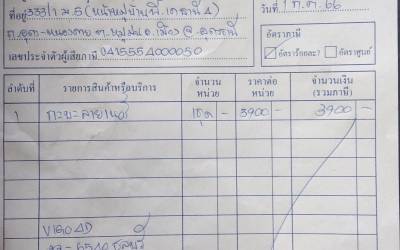 ที่อยู่ 333/1 ม.5 (หน้าหมู่บ้าน 4)
วันที่ 1 ก.ค. 66
ถ.อุดร-หนอง ต.หมูม่น อ.เมือง จ.อุดรธานี
เลขประจำตัวผู้เสียภาษี 0415554000050
อัตราภาษี
อัตราร้อยละ? อัตราศูนย์
ลำดับที่ รายการสินค้าหรือบริการ จำนวนหน่วย ราคาต่อหน่วย จำนวนเงิน (รวมภาษี)
1 กะบะลายเนอร์ 1ชุด - 3900 - 3900 -
VIGO 4D